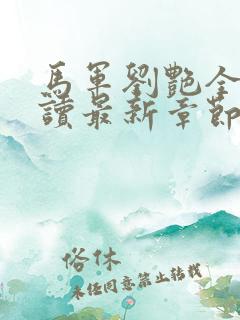 馬軍劉艷全
讀最新章節
俗休
未經同意禁止轉載